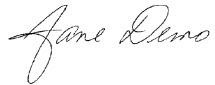 Jane Demo